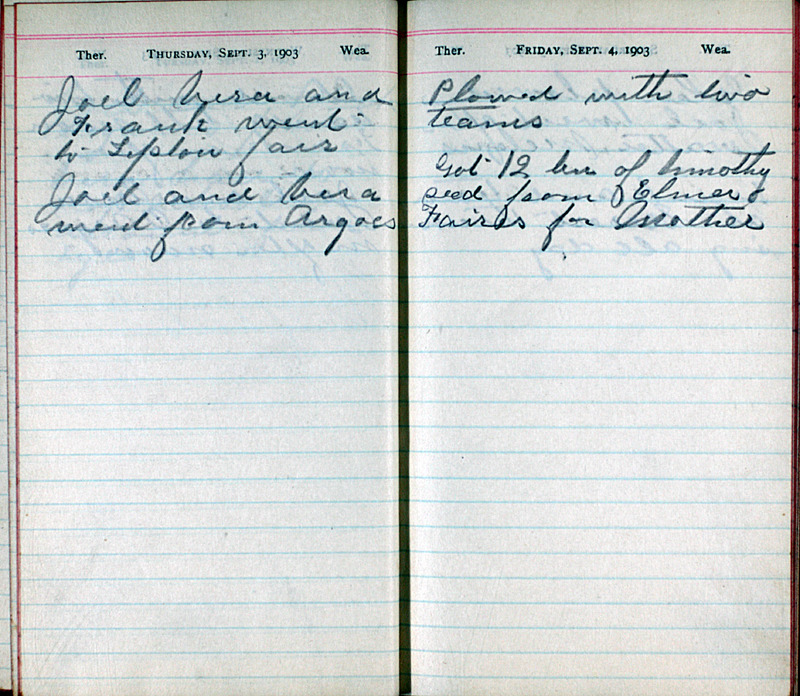 Ther. THURSDAY, SEPT. 3, 1903 Wea.
Joel Vera and
Frank went
to Tipton fair
Joel and Vera
went from Argoes
Ther. FRIDAY, SEPT. 4, 1903 Wea.
Plowed with two
teams
Got 12 bu of timothy
seed from Elmer
Faires for Mother